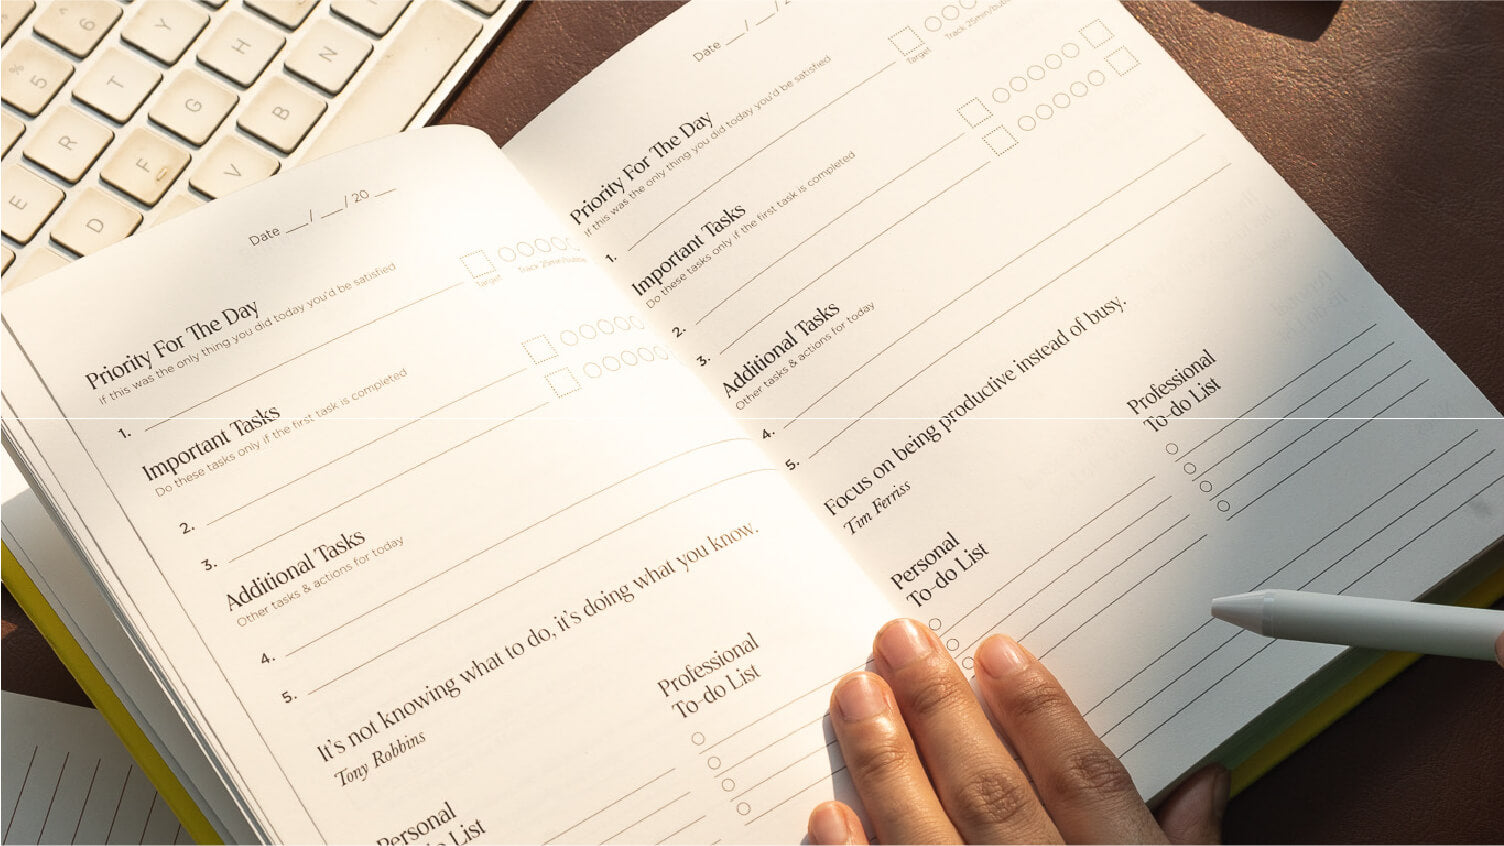 % 5
^ 6
Y
H
N
T
G
B
R
F
V
E
D
Date __/ __/ 20 __
Priority For The Day
If this was the only thing you did today you'd be satisfied
1.
Target
Track 25min/bubble
Important Tasks
Do these tasks only if the first task is completed
2.
3.
Additional Tasks
Other tasks & actions for today
4.
5.
It's not knowing what to do, it's doing what you know.
Tony Robbins
Professional
To-do List
Personal
List
Date __/ __/
Priority For The Day
If this was the only thing you did today you'd be satisfied
1.
Target
Track 25min/bubble
Important Tasks
Do these tasks only if the first task is completed
2.
3.
Additional Tasks
Other tasks & actions for today
4.
5.
Focus on being productive instead of busy.
Tim Ferriss
Professional
To-do List
Personal
To-do List